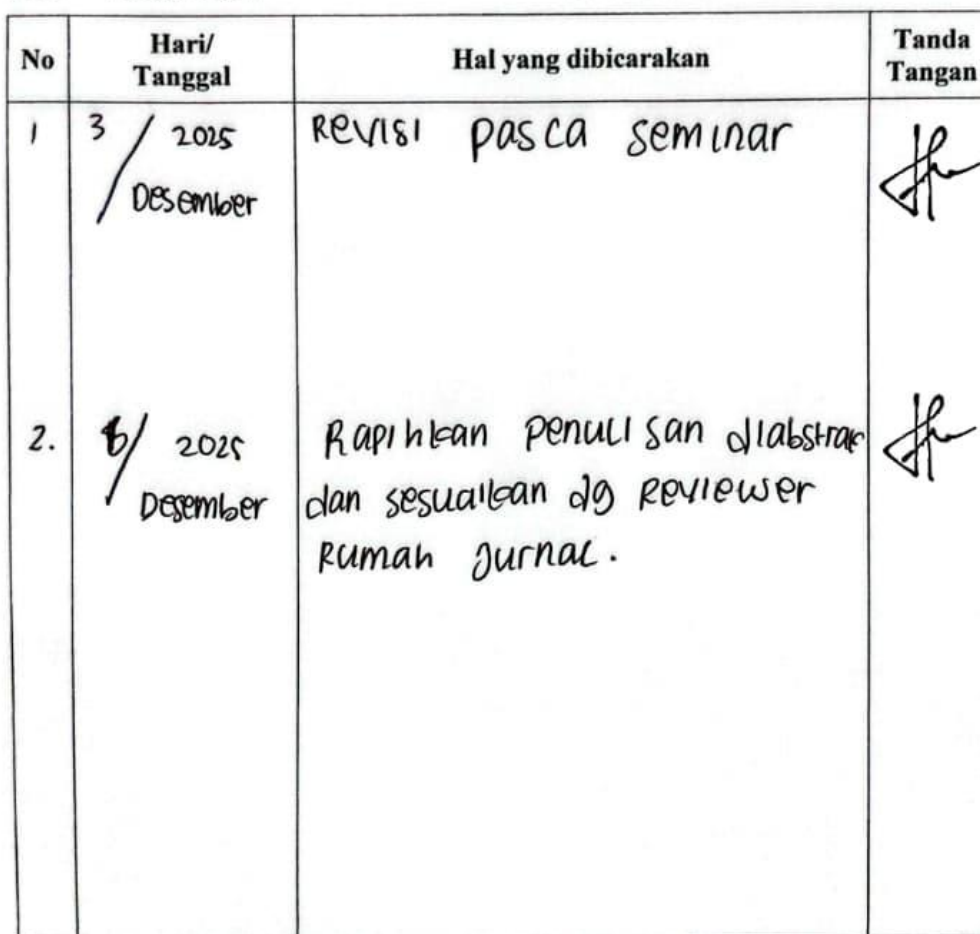 No
Hari/
Tanggal
Hal yang dibicarakan
Tanda
Tangan
1
3 / 2025
Desember
Revisi pasca seminar
2.
/ 2025
Desember
Rapihkan penulisan diabstrak
dan sesuaikan dg Reviewer
Rumah Jurnal.